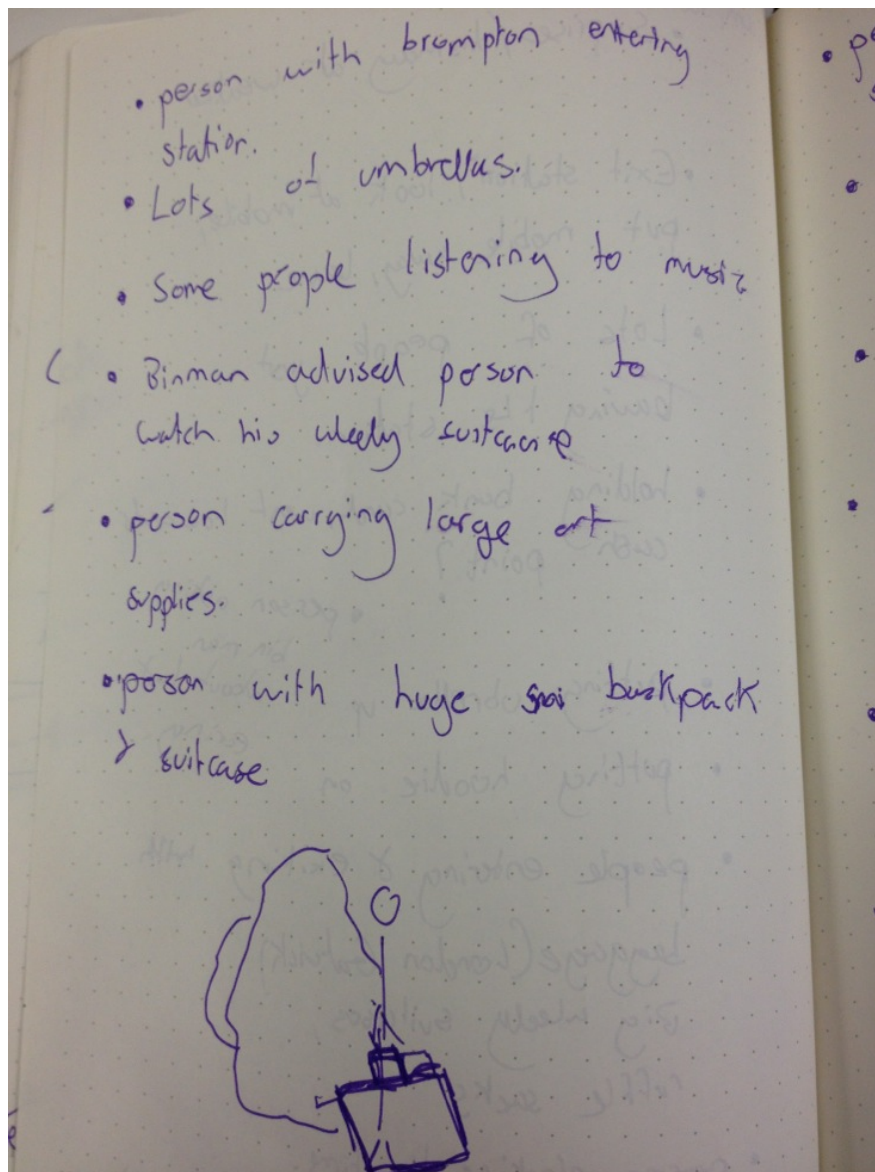 • person with brompton entering
station.
• Lots of umbrellas.
• Some people listening to music
• Binman advised person to
watch his wheely suitcase
• person carrying large art
supplies.
• person with huge backpack
& suitcase